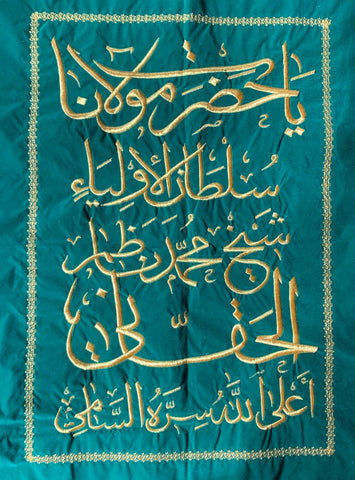 يا حضرة مولانا
سلطان الأولياء
شيخ محمد ناظم
الحقاني
أعلى الله سره السامي